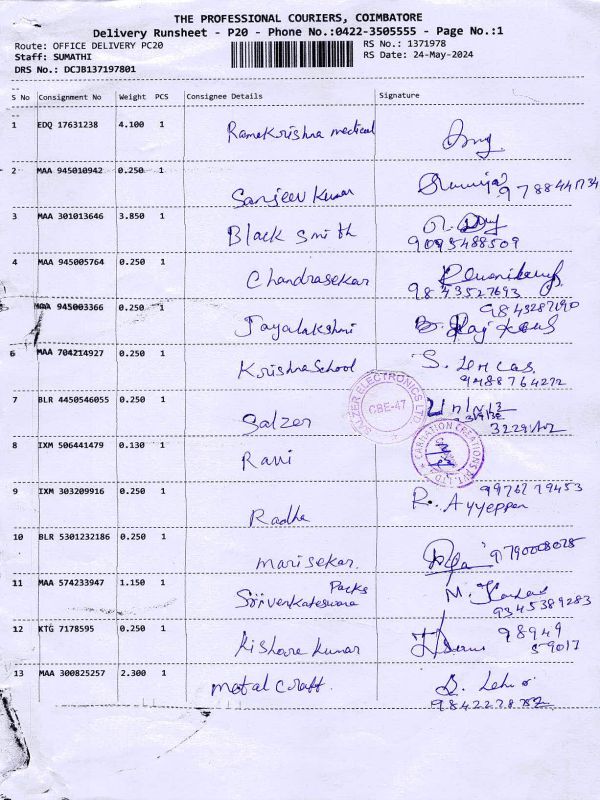 THE PROFESSIONAL COURIERS, COIMBATORE
Delivery Runsheet - P20 - Phone No.:0422-3505555 - Page No.:1
Route: OFFICE DELIVERY PC20 RS No.: 1371978
Staff: SUMATHI RS Date: 24-May-2024
DRS No.: DCJB137197801
S No Consignment No Weight PCS Consignee Details Signature
1 EDQ 17631238 4.100 1 Ramakrishna medical
2 MAA 945010942 0.250 1 Sanjeev Kumar
3 MAA 301013646 3.850 1 Black Smith
9095488509
4 MAA 945005764 0.250 1 Chandrasekar
9843527693
MAA 945003366 0.250 1 Jayalakshmi
6 MAA 704214927 0.250 1 Krishna School
7 BLR 4450546055 0.250 1 Salzer
SALZER ELECTRONICS LTD
CBE-47
8 IXM 506441479 0.130 1 Ravi
CARNATION CREATIONS PVT. LTD.
9 IXM 303209916 0.250 1 Radha R. Ayyeppan
10 BLR 5301232186 0.250 1 Marisekar 9790008028
11 MAA 574233947 1.150 1 Srivenkateswara Packs
9345389283
12 KTG 7178595 0.250 1 Kishore Kumar 98949
59017
13 MAA 300825257 2.300 1 Metal Craft